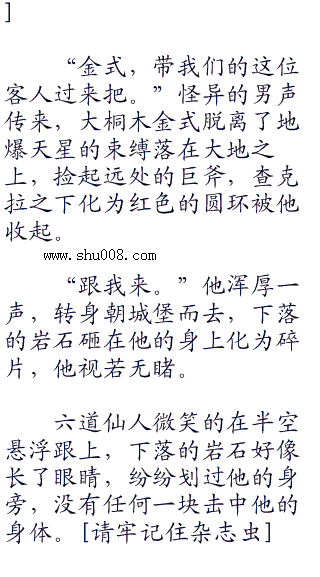 ]
“金式，带我们的这位
客人过来把。”怪异的男声
传来，大桐木金式脱离了地
爆天星的束缚落在大地之
上，捡起远处的巨斧，查克
拉之下化为红色的圆环被他
收起。
www.shu008.com
“跟我来。”他浑厚一
声，转身朝城堡而去，下落
的岩石砸在他的身上化为碎
片，他视若无睹。
六道仙人微笑的在半空
悬浮跟上，下落的岩石好像
长了眼睛，纷纷划过他的身
旁，没有任何一块击中他的
身体。[请牢记住杂志虫]